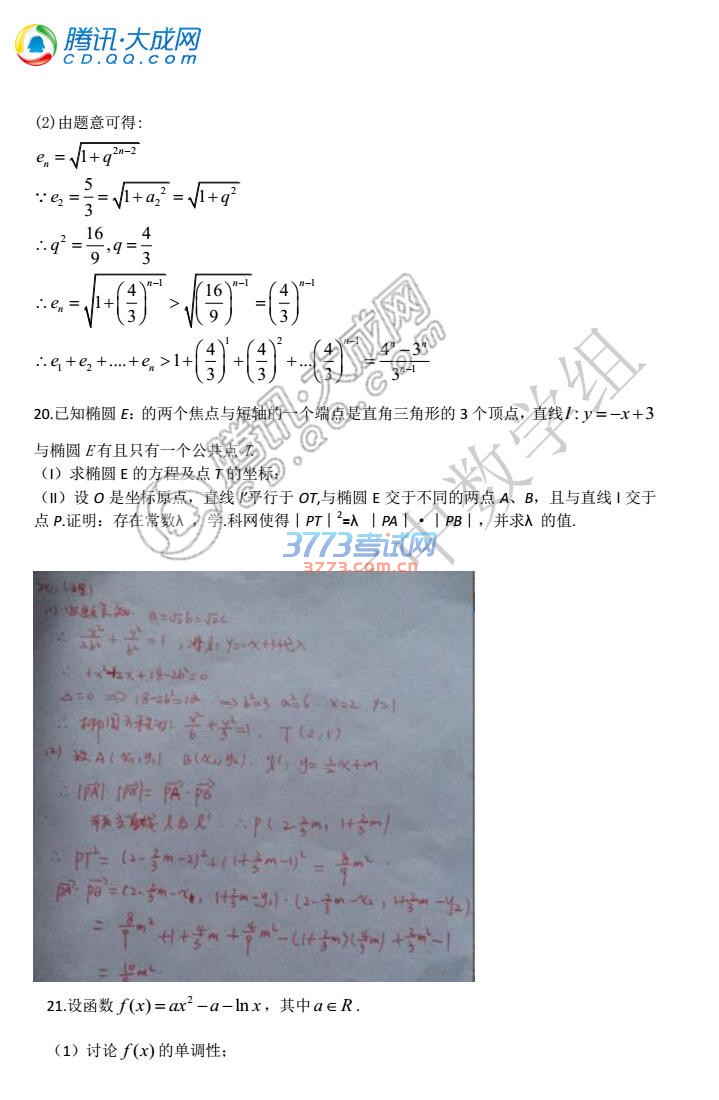 腾讯·大成网
CD.QQ.COM
(2)由题意可得:
eₙ = √(1+q²ⁿ⁻²)
∵e₂ = 5/3 = √(1+a₂²) = √(1+q²)
∴q² = 16/9, q = 4/3
∴eₙ = √(1+(4/3)ⁿ⁻¹) > √((16/9)ⁿ⁻¹) = (4/3)ⁿ⁻¹
∴e₁+e₂+....+eₙ >1+(4/3)¹+(4/3)²+...(4/3)ⁿ⁻¹ = (4ⁿ−3ⁿ)/3ⁿ⁻¹
20.已知椭圆 E：的两个焦点与短轴的一个端点是直角三角形的 3 个顶点，直线 l : y = −x + 3
与椭圆 E 有且只有一个公共点 T.
（I）求椭圆 E 的方程及点 T 的坐标；
（II）设 O 是坐标原点，直线 l’平行于 OT,与椭圆 E 交于不同的两点 A、B，且与直线 l 交于
点 P.证明：存在常数λ ，学.科网使得∣PT∣²=λ ∣PA∣·∣PB∣，并求λ 的值.
3773考试网
3773.com.cn
(1) 由题意知 a=√2b=√2c
∴ x²/2b² + y²/b² = 1 , 将l: y=-x+3代入
∴ 3x²-12x+18-2b²=0
△=0 ⇒ 18-2b²=12 ⇒ b²=3 a²=6 x=2 y=1
∴ 椭圆方程为: x²/6 + y²/3 =1, T(2,1)
(2) 设A(x₁,y₁) B(x₂,y₂). l': y=½x+m
∴ |PA|·|PB|= PA·PB
联立直线 l 与 l' ∴ P(2-⅔m, 1+⅔m)
∴ PT²= (2-⅔m-2)²+(1+⅔m-1)² = 8/9 m²
PA·PB=(2-⅔m-x₁, 1+⅔m-y₁)·(2-⅔m-x₂, 1+⅔m-y₂)
21.设函数 f(x) = ax² − a − ln x，其中 a ∈ R .
（1）讨论 f(x) 的单调性；
腾讯·大成网
cd.qq.com
中数学组